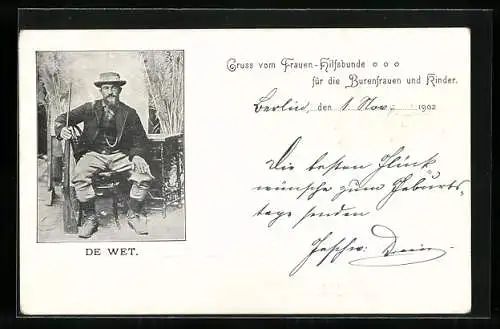 Gruss vom Frauen-Hilfsbunde o o o
für die Burenfrauen und Kinder.
Berlin, den 1. Nov. 1902
Die besten Glück
wünsche zum Geburts-
tage senden
Geschw.
DE WET.